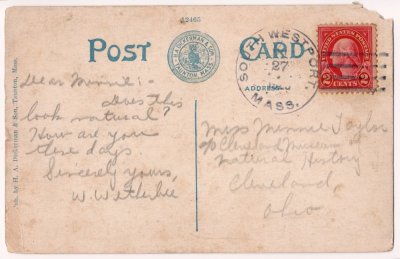 12465
POST CARD
H.A. DICKERMAN & SON
TAUNTON, MASS.
SOUTH WESTPORT
27
MASS.
UNITED STATES POSTAGE
2 CENTS 2
ADDRESS
Pub. by H. A. Dickerman & Son, Taunton, Mass.
Dear Minnie:-
Does this
look natural?
How are you
these days
Sincerely yours,
W. Wetherbee
Miss Minnie Taylor
c/o Cleveland Museum
Natural History
Cleveland,
Ohio